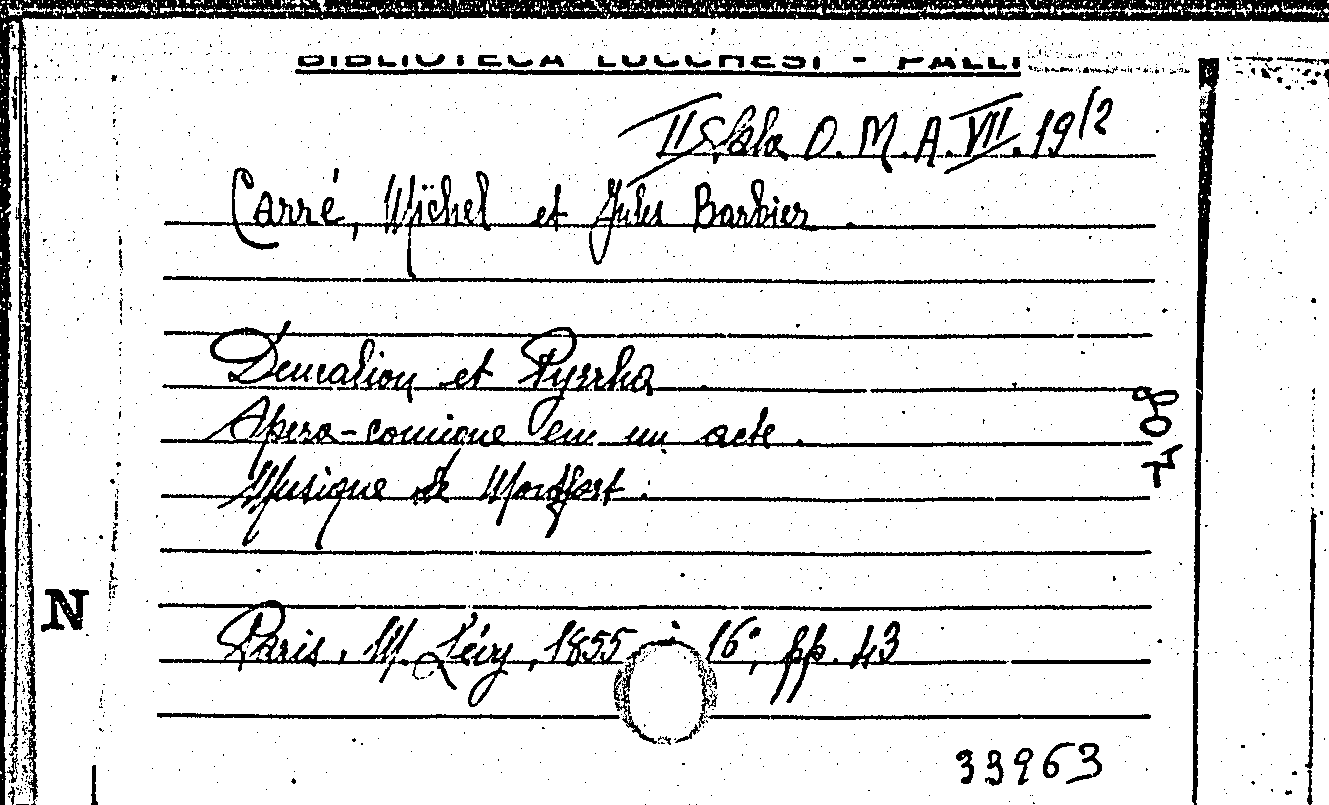 BIBLIOTECA LUCCHESI - PALLI
II Sala O. M. A. VII. 19/2
Carré, Michel et Jules Barbier.
Deucalion et Pyrrha
Opera-comique en un acte.
Musique de Montfort.
N
Paris, M. Lévy, 1855 in 16°, pp. 43
33963